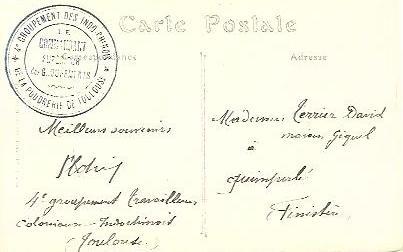 Carte Postale
Correspondance
Adresse
4e GROUPEMENT DES INDO-CHINOIS
DE LA POUDRERIE DE TOULOUSE
LE
COMMANDANT
SUPÉRIEUR
DES GROUPEMENTS
Meilleurs souvenirs
4e groupement travailleurs
coloniaux Indochinois
(Toulouse)
Madame Terrier David
maison Giquel
à
Quimperlé
Finistère